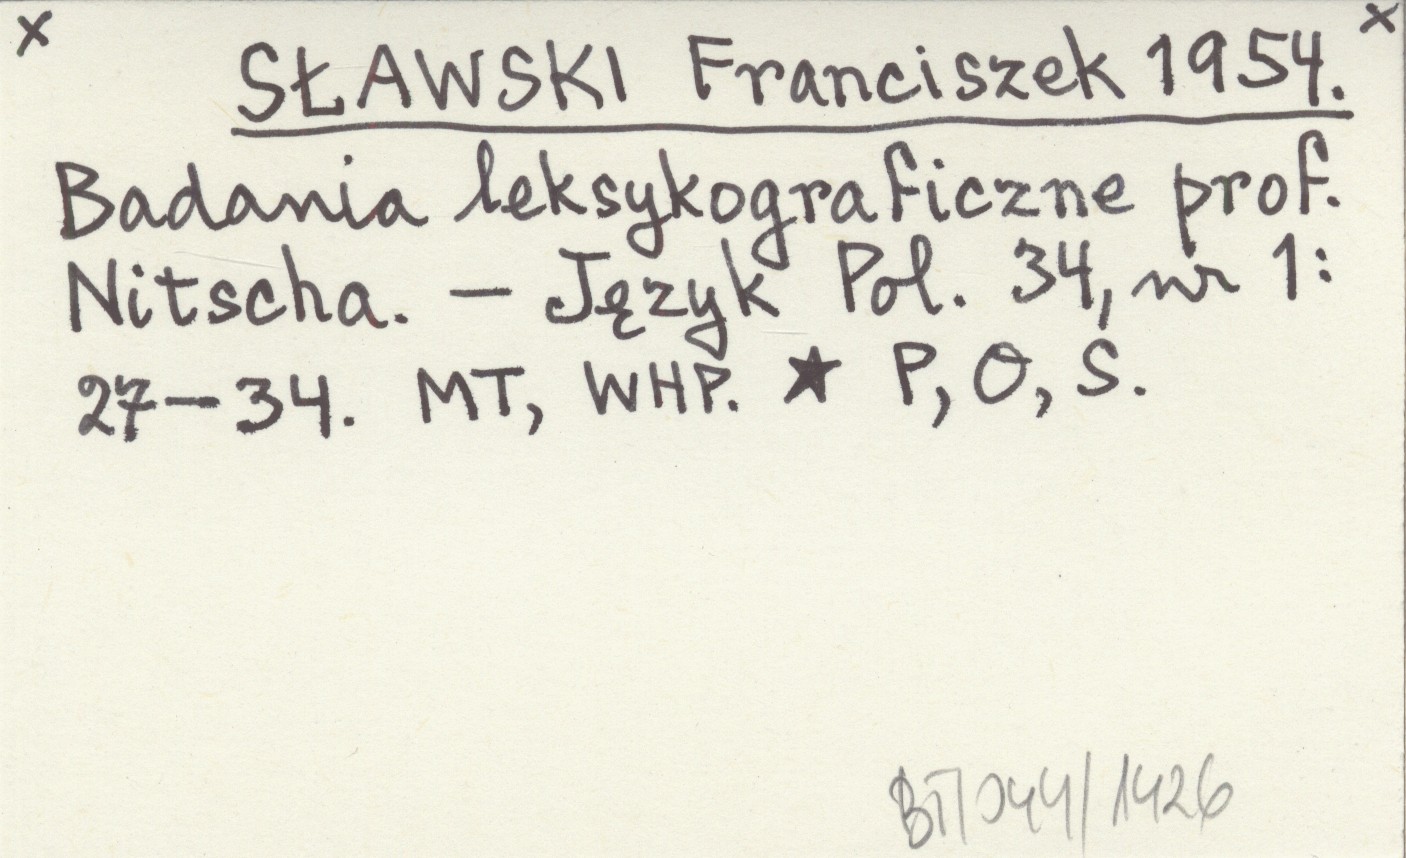 x x
SŁAWSKI Franciszek 1954.
Badania leksykograficzne prof.
Nitscha. — Język Pol. 34, nr 1:
27—34. MT, WHP. ★ P, O, S.
BT/044/1426